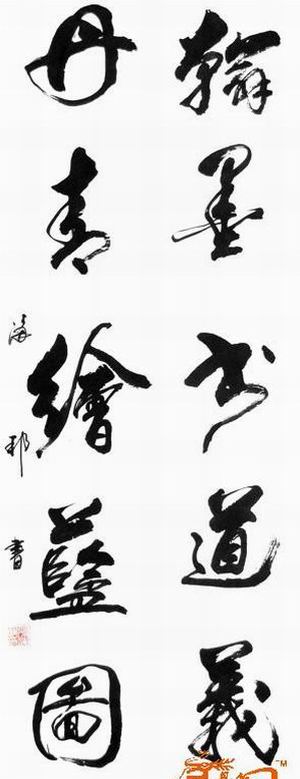 翰墨书道義
丹青繪藍圖
海邦書